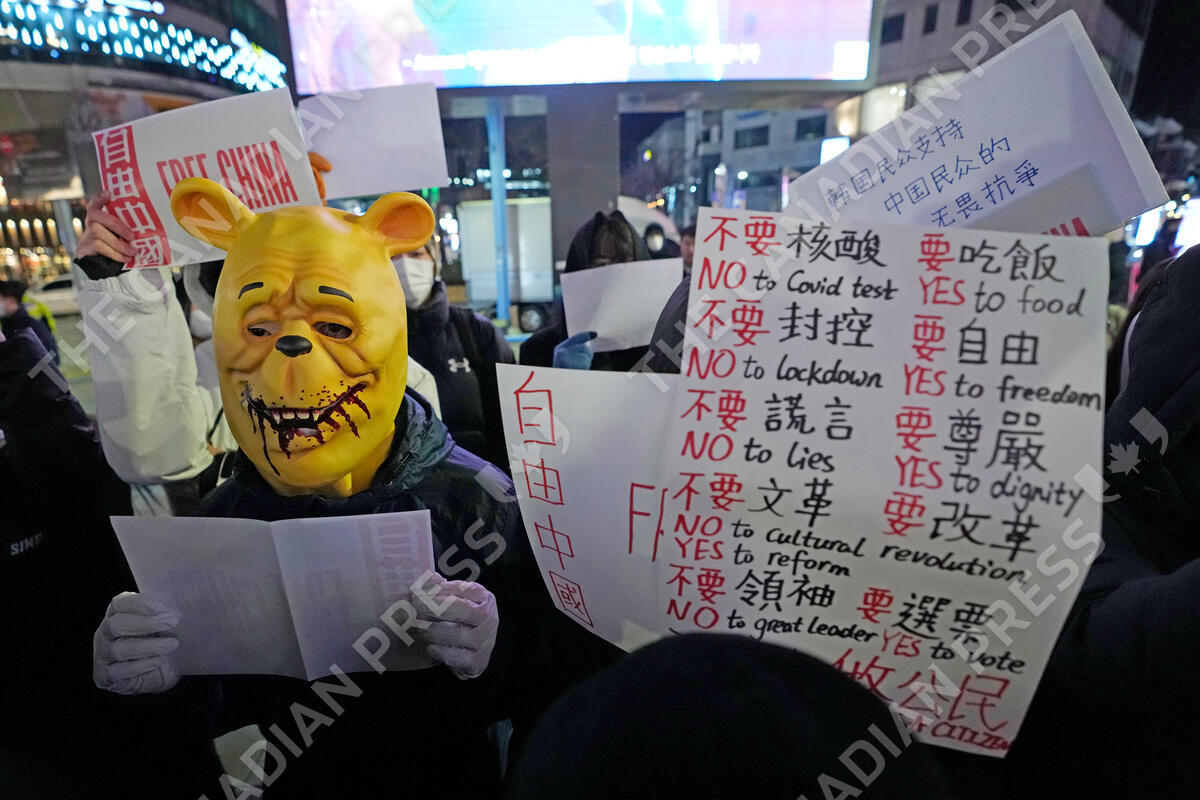 自由中國
FREE CHINA
韓国民众支持
中国民众的
无畏抗爭
自由中國
不要 核酸 要 吃飯
NO to Covid test YES to food
不要 封控 要 自由
NO to lockdown YES to freedom
不要 謊言 要 尊嚴
NO to lies YES to dignity
不要 文革 要 改革
NO to Cultural revolution
YES to reform
不要 領袖 要 選票
NO to great leader YES to vote
做公民
CITIZEN
THE CANADIAN PRESS
THE CANADIAN PRESS
THE CANADIAN PRESS
THE CANADIAN PRESS